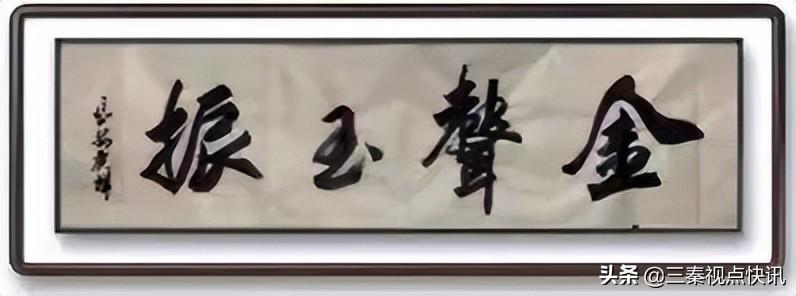 金聲玉振
長安
头条 @三秦视点快讯